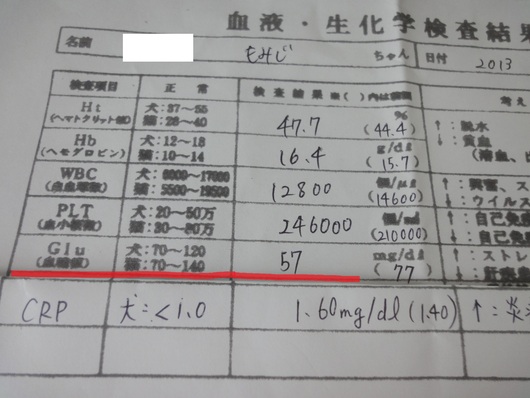 血液・生化学検査結果
名前 もみじ ちゃん 日付 2013
検査項目 正常 検査結果 ※( )内は前回 考え
Ht (ヘマトクリット値) 犬:37～55 猫:28～40 47.7 % (44.4) ↑:脱水 ↓:貧血
Hb (ヘモグロビン) 犬:12～18 猫:10～14 16.4 g/dl (15.7) (溶血、出
WBC (白血球数) 犬:6000～17000 猫:5500～19500 12800 個/μl (14600) ↑:興奮、ス ↓:ウイルス
PLT (血小板数) 犬:20～50万 猫:30～80万 246000 (210000) ↑:自己免疫 ↓:自己免
Glu (血糖値) 犬:70～120 猫:70～140 57 mg/dl (77) ↑:ストレ ↓:肝
CRP 犬:<1.0 1.60mg/dl (1.40) ↑:炎